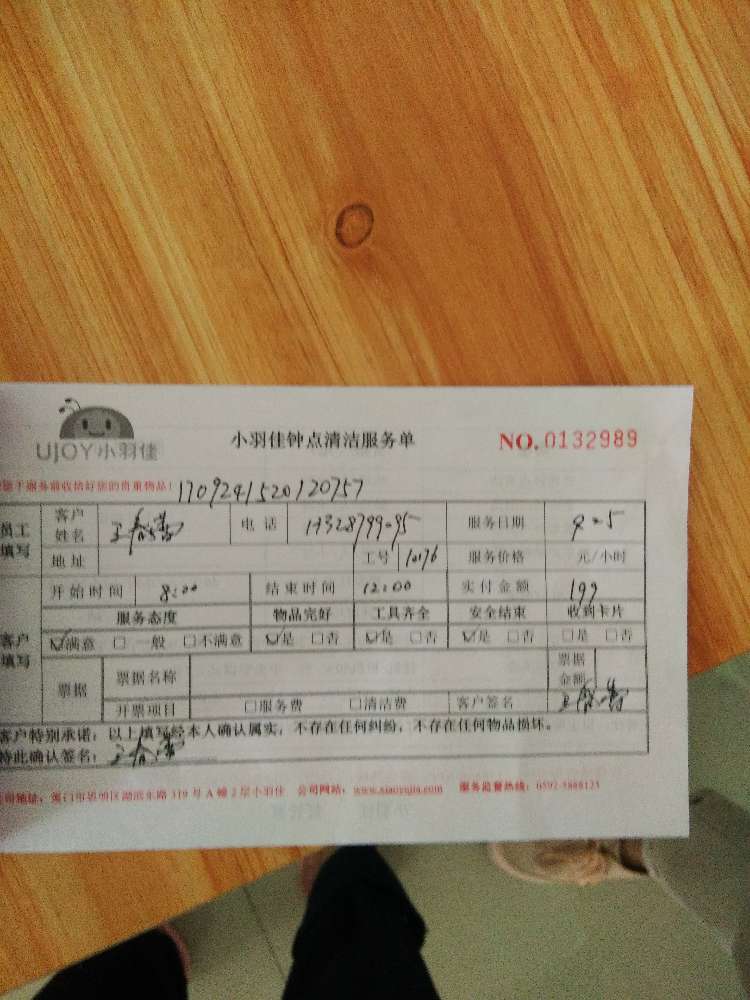 UJOY小羽佳
小羽佳钟点清洁服务单
NO.0132989
服务前收拾好您的贵重物品!
1709241520120757
员工填写
客户姓名 电话 服务日期 9.25
地址 工号 10176 服务价格 元/小时
开始时间 8:00 结束时间 12:00 实付金额 199
客户填写
服务态度 物品完好 工具齐全 安全结束 收到卡片
☑满意 □一般 □不满意 ☑是 □否 ☑是 □否 ☑是 □否 □是 □否
票据 票据名称 票据金额
开票项目 □服务费 □清洁费 客户签名
客户特别承诺:以上填写经本人确认属实,不存在任何纠纷,不存在任何物品损坏。
特此确认签名:
公司地址:厦门市思明区湖滨东路 319 号 A 幢 2 层小羽佳 公司网站:www.xiaoyujia.com 服务监督热线:0592-5888125